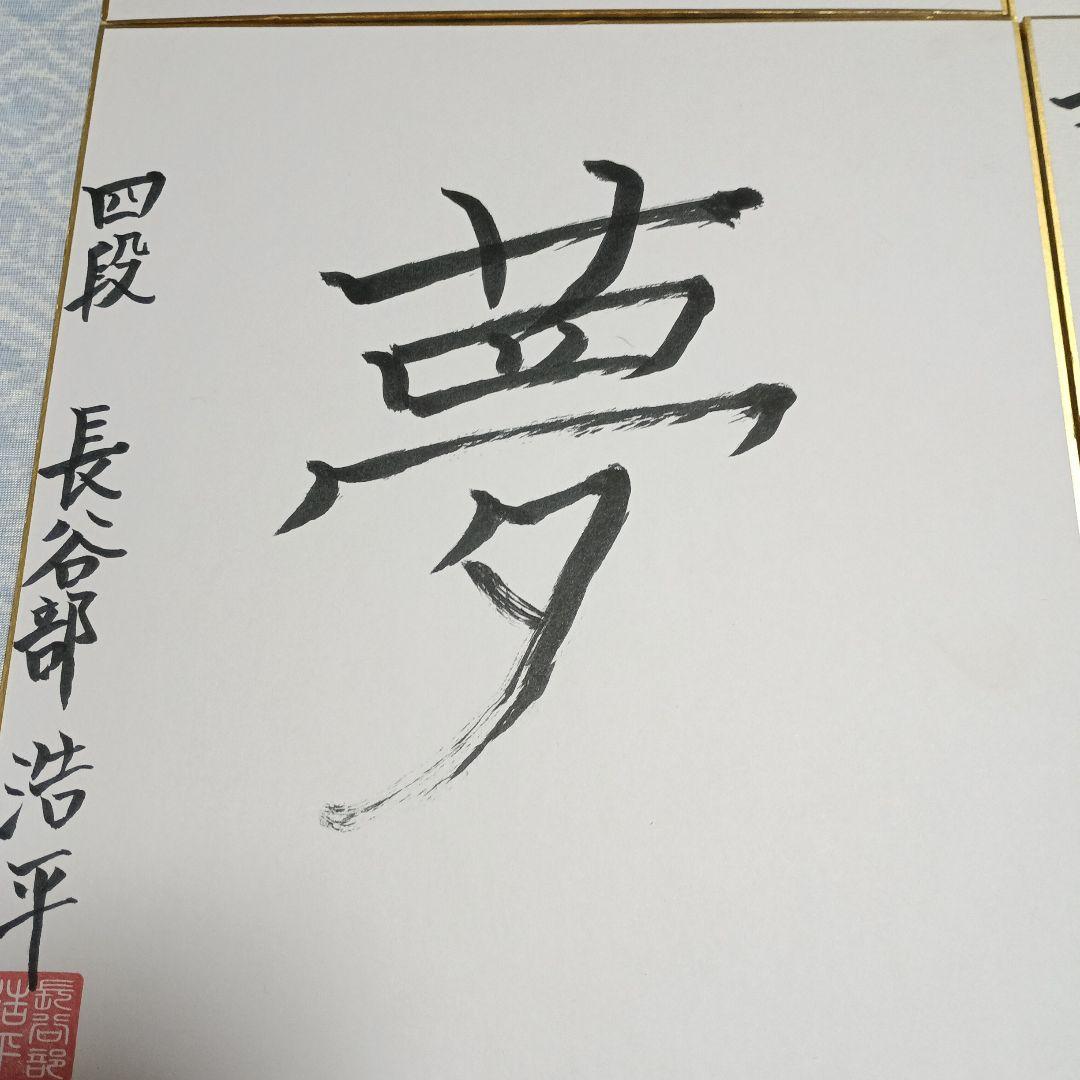 夢
四段 長谷部 浩平
長谷部
浩平